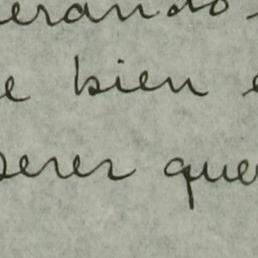 erando
e bien e
serer que